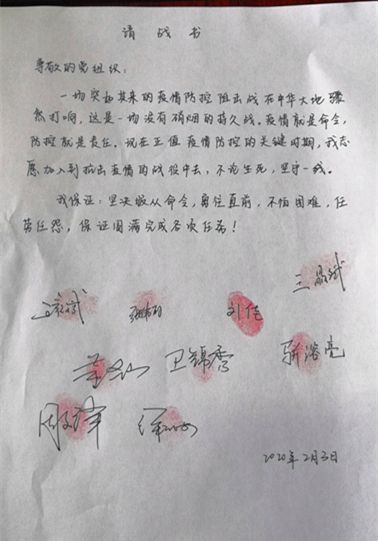 请战书
尊敬的党组织：
一场突如其来的疫情防控阻击战在中华大地骤
然打响，这是一场没有硝烟的持久战。疫情就是命令，
防控就是责任。现在正值疫情防控的关键时期，我志
愿加入到抗击疫情的战役中去，不论生死，坚守一线。
我保证：坚决服从命令，勇往直前，不怕困难，任
劳任怨，保证圆满完成各项任务！
刘佳
卫锦秀
2020年2月3日